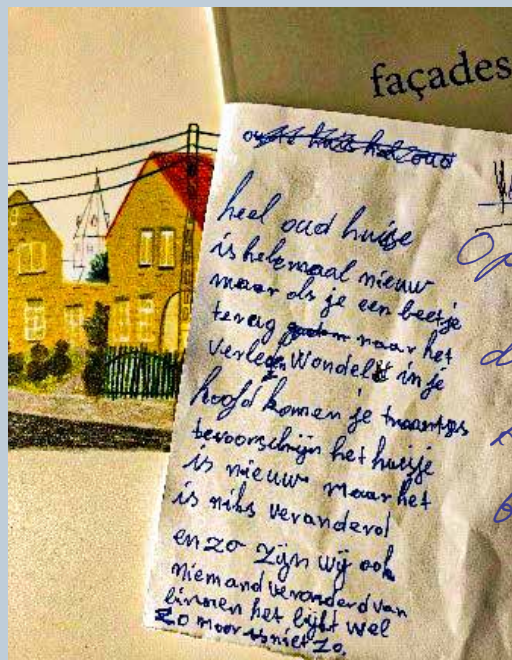 façades
heel oud huisje
is helemaal nieuw
maar als je een beetje
terug naar het
verleden wandelt in je
hoofd komen je traantjes
tevoorschijn het huisje
is nieuw maar het
is niks veranderd
en zo zijn wij ook
niemand veranderd van
binnen het lijkt wel
zo maar is niet zo.